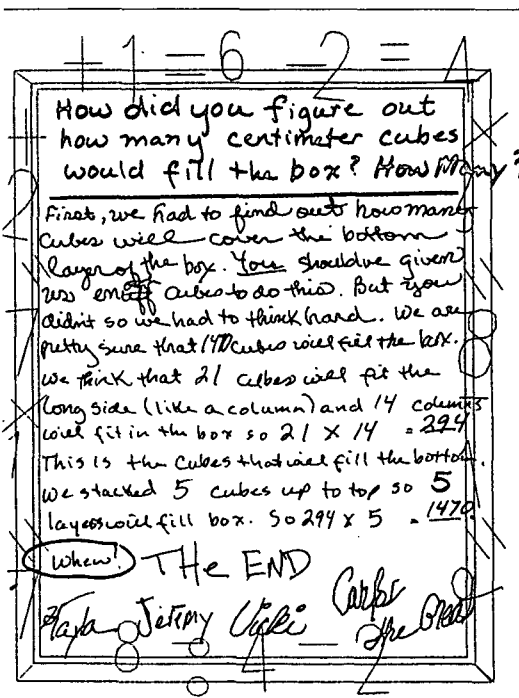 + 1 = 6 - 2 = 4
How did you figure out
how many centimeter cubes
would fill the box? How Many?
First, we had to find out how many
cubes will cover the bottom
layer of the box. You should've given
us enuff cubes to do this. But you
didnt so we had to think hard. We are
pretty sure that 1470 cubes will fill the box.
We think that 21 cubes will fit the
long side (like a column) and 14 columns
will fit in the box so 21 X 14 = 294
This is the cubes that will fill the bottom.
We stacked 5 cubes up to top so 5
layers will fill box. So 294 x 5 = 1470.
Whew! THe END
Kayla Jeremy Vicki Carlos
The Great
8 ÷ 4 - 2